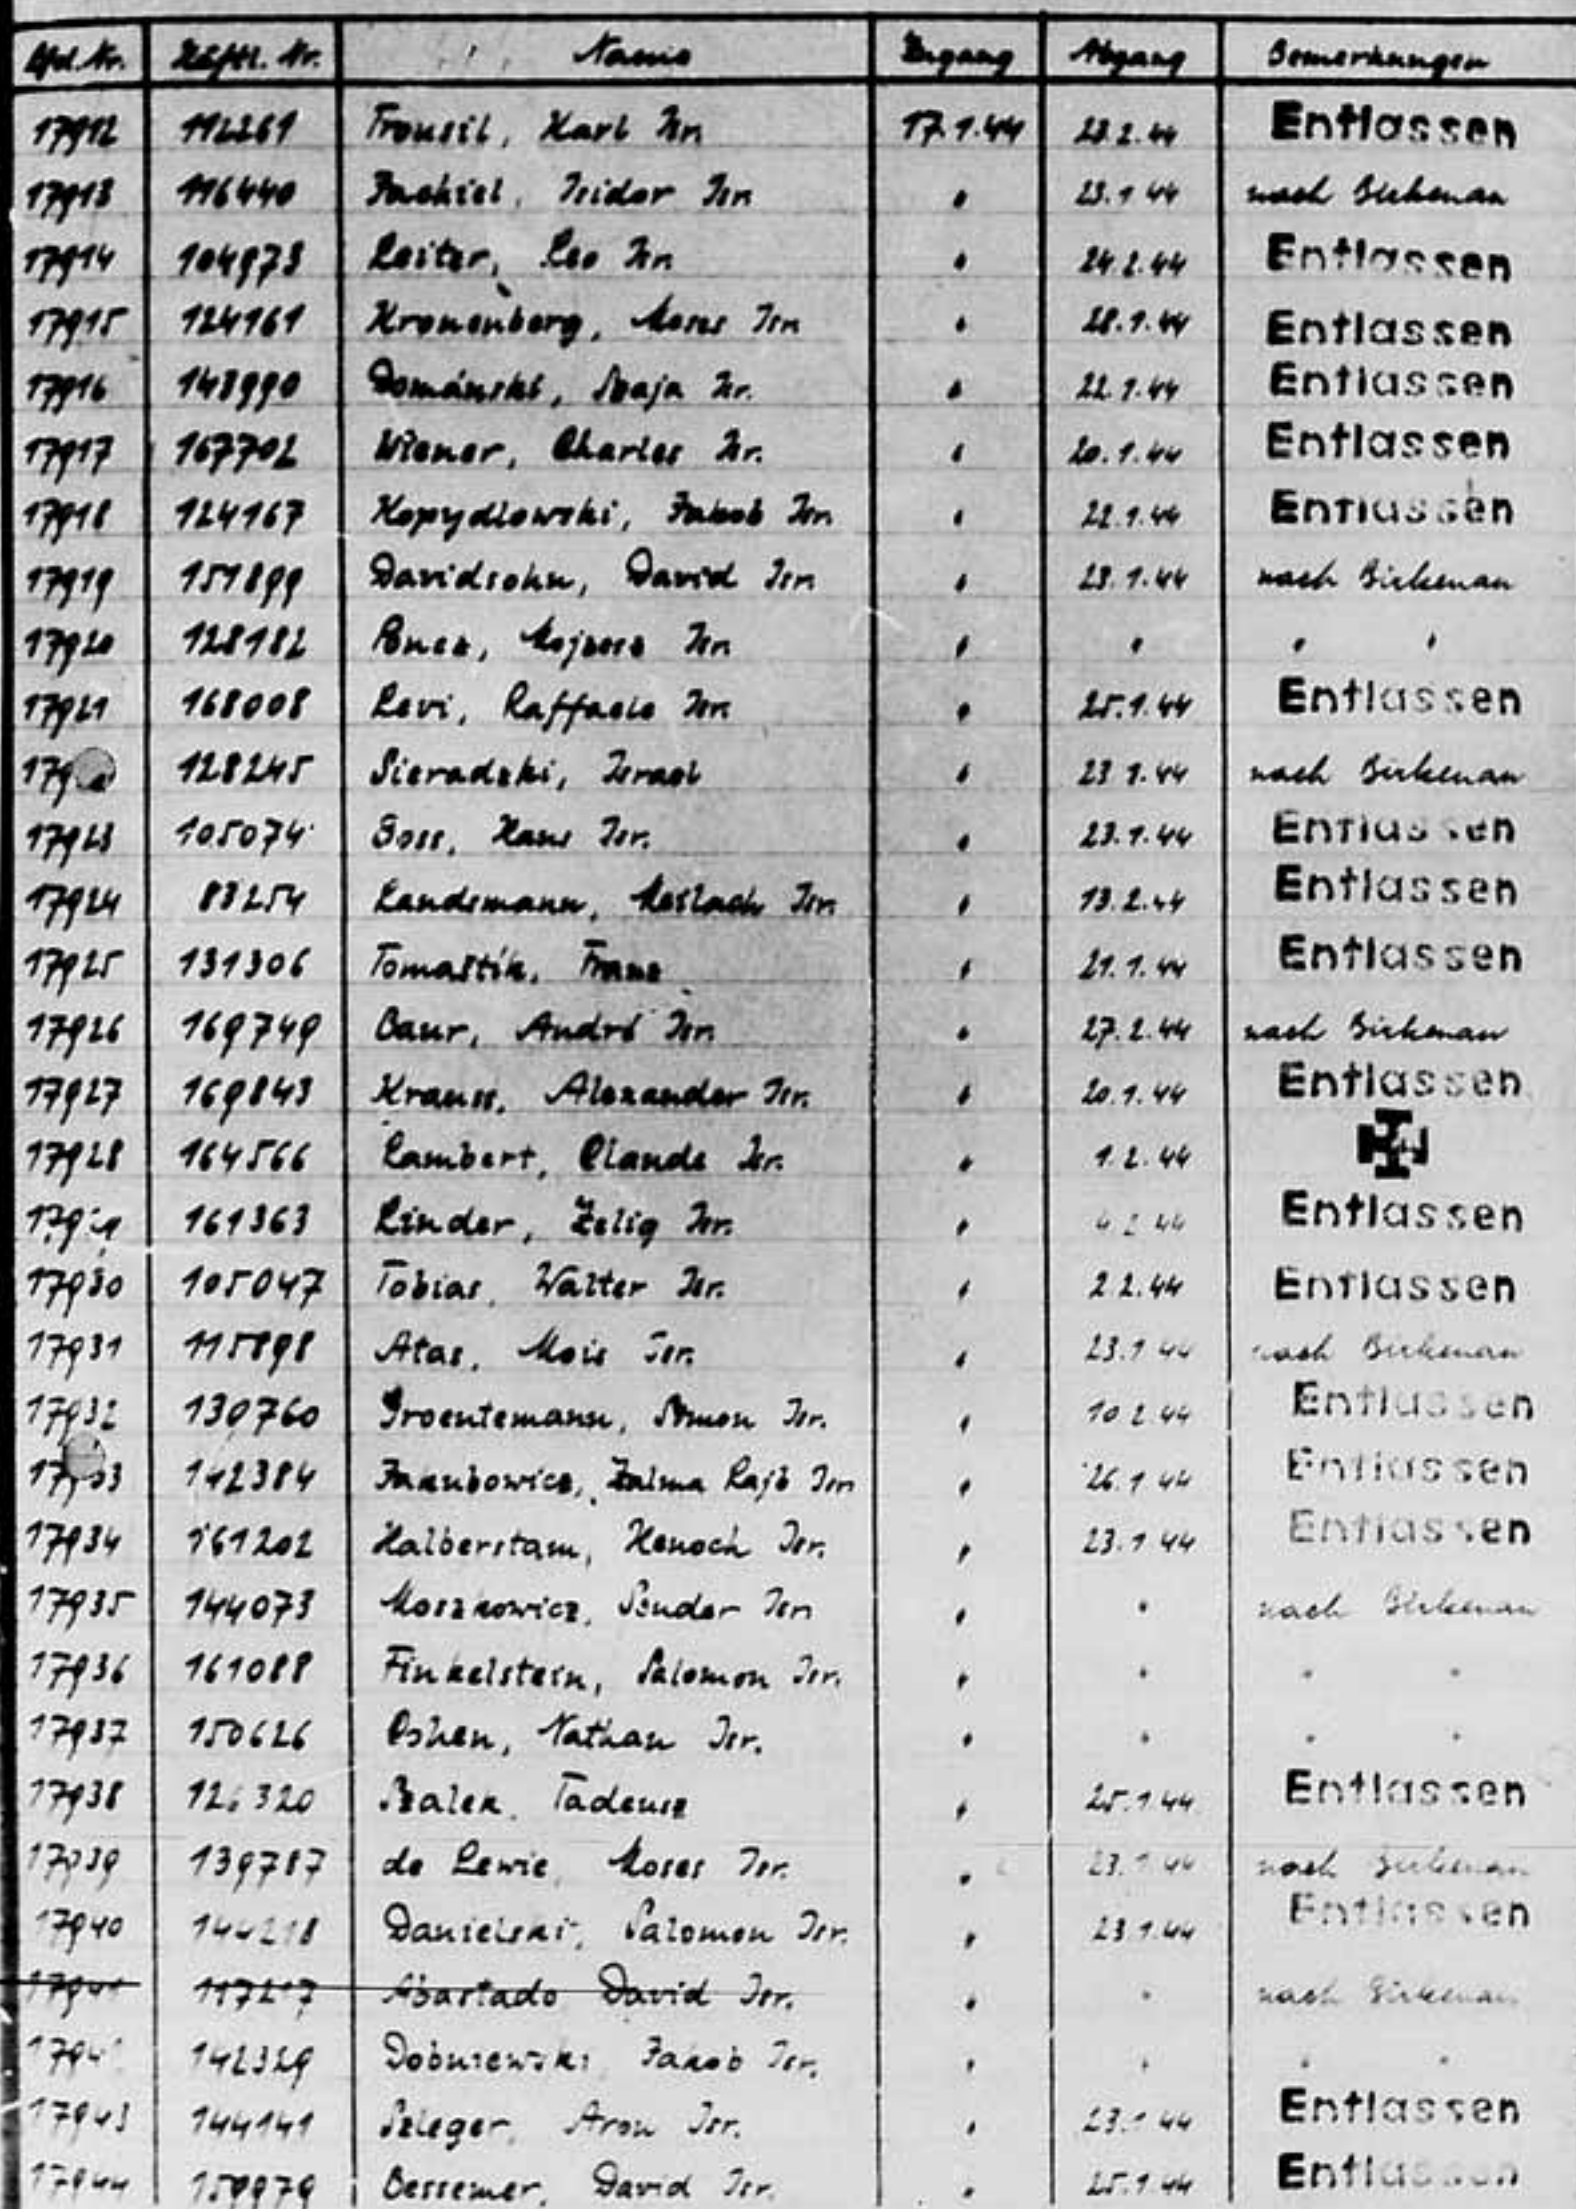 Lfd. Nr. Häftl. Nr. Name Zugang Abgang Bemerkungen
17912 112261 Trousil, Karl Isr. 17.1.44 23.2.44 Entlassen
17913 116440 Isidor Isr. " 23.1.44 nach Birkenau
17914 104973 Reiter, Leo Isr. " 24.2.44 Entlassen
17915 124161 Kronenberg, Moses Isr. " 28.1.44 Entlassen
17916 143990 Domański, Szaja Isr. " 22.1.44 Entlassen
17917 167702 Wiener, Charles Isr. " 20.1.44 Entlassen
17918 124167 Kopydlowski, Jakob Isr. " 22.1.44 Entlassen
17919 151899 Davidsohn, David Isr. " 23.1.44 nach Birkenau
17920 128182 Isr. " " " "
17921 168008 Levi, Raffaele Isr. " 25.1.44 Entlassen
128245 Sieradzki, Israel " 23.1.44 nach Birkenau
17923 105074 Hans Isr. " 23.1.44 Entlassen
17924 83254 Landsmann, Isr. " 13.2.44 Entlassen
17925 131306 Tomaštík, Franz " 21.1.44 Entlassen
17926 169749 André Isr. " 27.2.44 nach Birkenau
17927 169843 Krauss, Alexander Isr. " 20.1.44 Entlassen
17928 164566 Lambert, Claude Isr. " 1.2.44
161363 Linder, Zelig Isr. " 4.2.44 Entlassen
17930 105047 Tobias, Walter Isr. " 2.2.44 Entlassen
17931 115898 Atas, Mois Isr. " 23.1.44 nach Birkenau
17932 139760 Groentemann, Simon Isr. " 10.2.44 Entlassen
17933 142384 Jakubowicz, Zalma Lajb Isr. " 26.1.44 Entlassen
17934 161202 Halberstam, Henoch Isr. " 23.1.44 Entlassen
17935 144073 Moszkowicz, Sender Isr. " " nach Birkenau
17936 161088 Finkelstein, Salomon Isr. " " " "
17937 150626 Nathan Isr. " " " "
17938 Tadeusz " 25.1.44 Entlassen
17939 139787 de Lewie, Moses Isr. " 23.1.44 nach Birkenau
17940 144218 Danielski, Salomon Isr. " 23.1.44 Entlassen
17941 117217 Abastado David Isr. " " nach Birkenau
142329 Jakob Isr. " " " "
17943 144141 Szleger, Aron Isr. " 23.1.44 Entlassen
17944 159979 Bessemer, David Isr. " 25.1.44 Entlassen